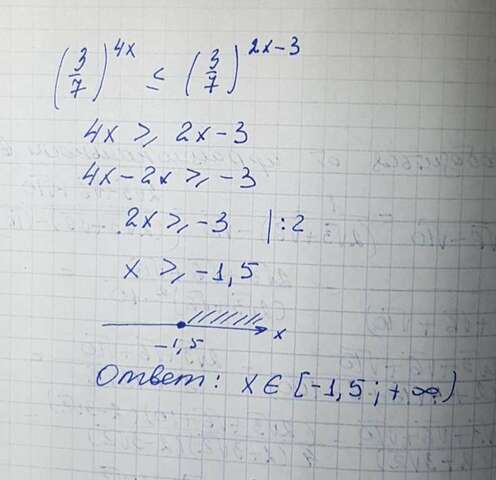 (3/7)^4x ≤ (3/7)^2x-3
4x ≥ 2x-3
4x-2x ≥ -3
2x ≥ -3 |:2
x ≥ -1,5
-1,5 x
Ответ: x ∈ [-1,5; +∞)